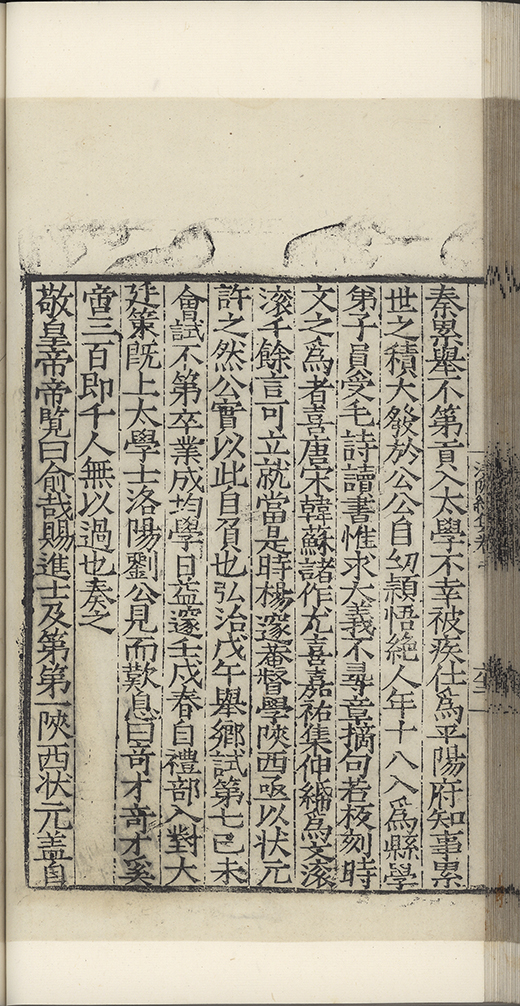 秦累舉不第貢入太學不幸被疾仕爲平陽府知事累
世之積大發於公公自幼穎悟絶人年十八入爲縣學
弟子員受毛詩讀書惟求大義不尋章摘句若板刻時
文之爲者喜唐宋韓蘇諸作尤喜嘉祐集伸紙爲文滚
滚千餘言可立就當是時楊邃菴督學陝西亟以状元
許之然公實以此自負也弘治戊午舉鄉試第七己未
會試不第卒業成均學日益邃壬戌春自禮部入對大
廷策既上大學士洛陽劉公見而歎息曰竒才竒才奚
啻三百即千人無以過也奏之
敬皇帝帝覽曰俞哉賜進士及第第一陝西状元盖自